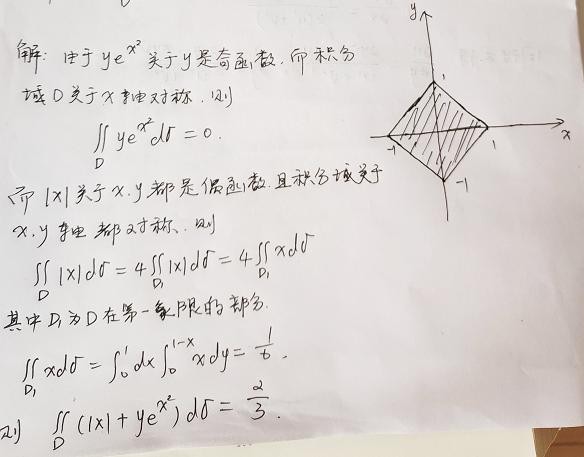 解: 由于 ye^{x^2} 关于y是奇函数, 而积分
域D关于x轴对称, 则
∬_D ye^{x^2}dσ = 0.
而 |x| 关于x.y都是偶函数, 且积分域关于
x.y轴都对称, 则
∬_D |x|dσ = 4∬_{D_1} |x|dσ = 4∬_{D_1} xdσ
其中D_1为D在第一象限的部分.
∬_{D_1} xdσ = ∫_0^1 dx ∫_0^{1-x} xdy = 1/6.
则 ∬_D (|x| + ye^{x^2})dσ = 2/3.
y
1
-1
1
x
-1